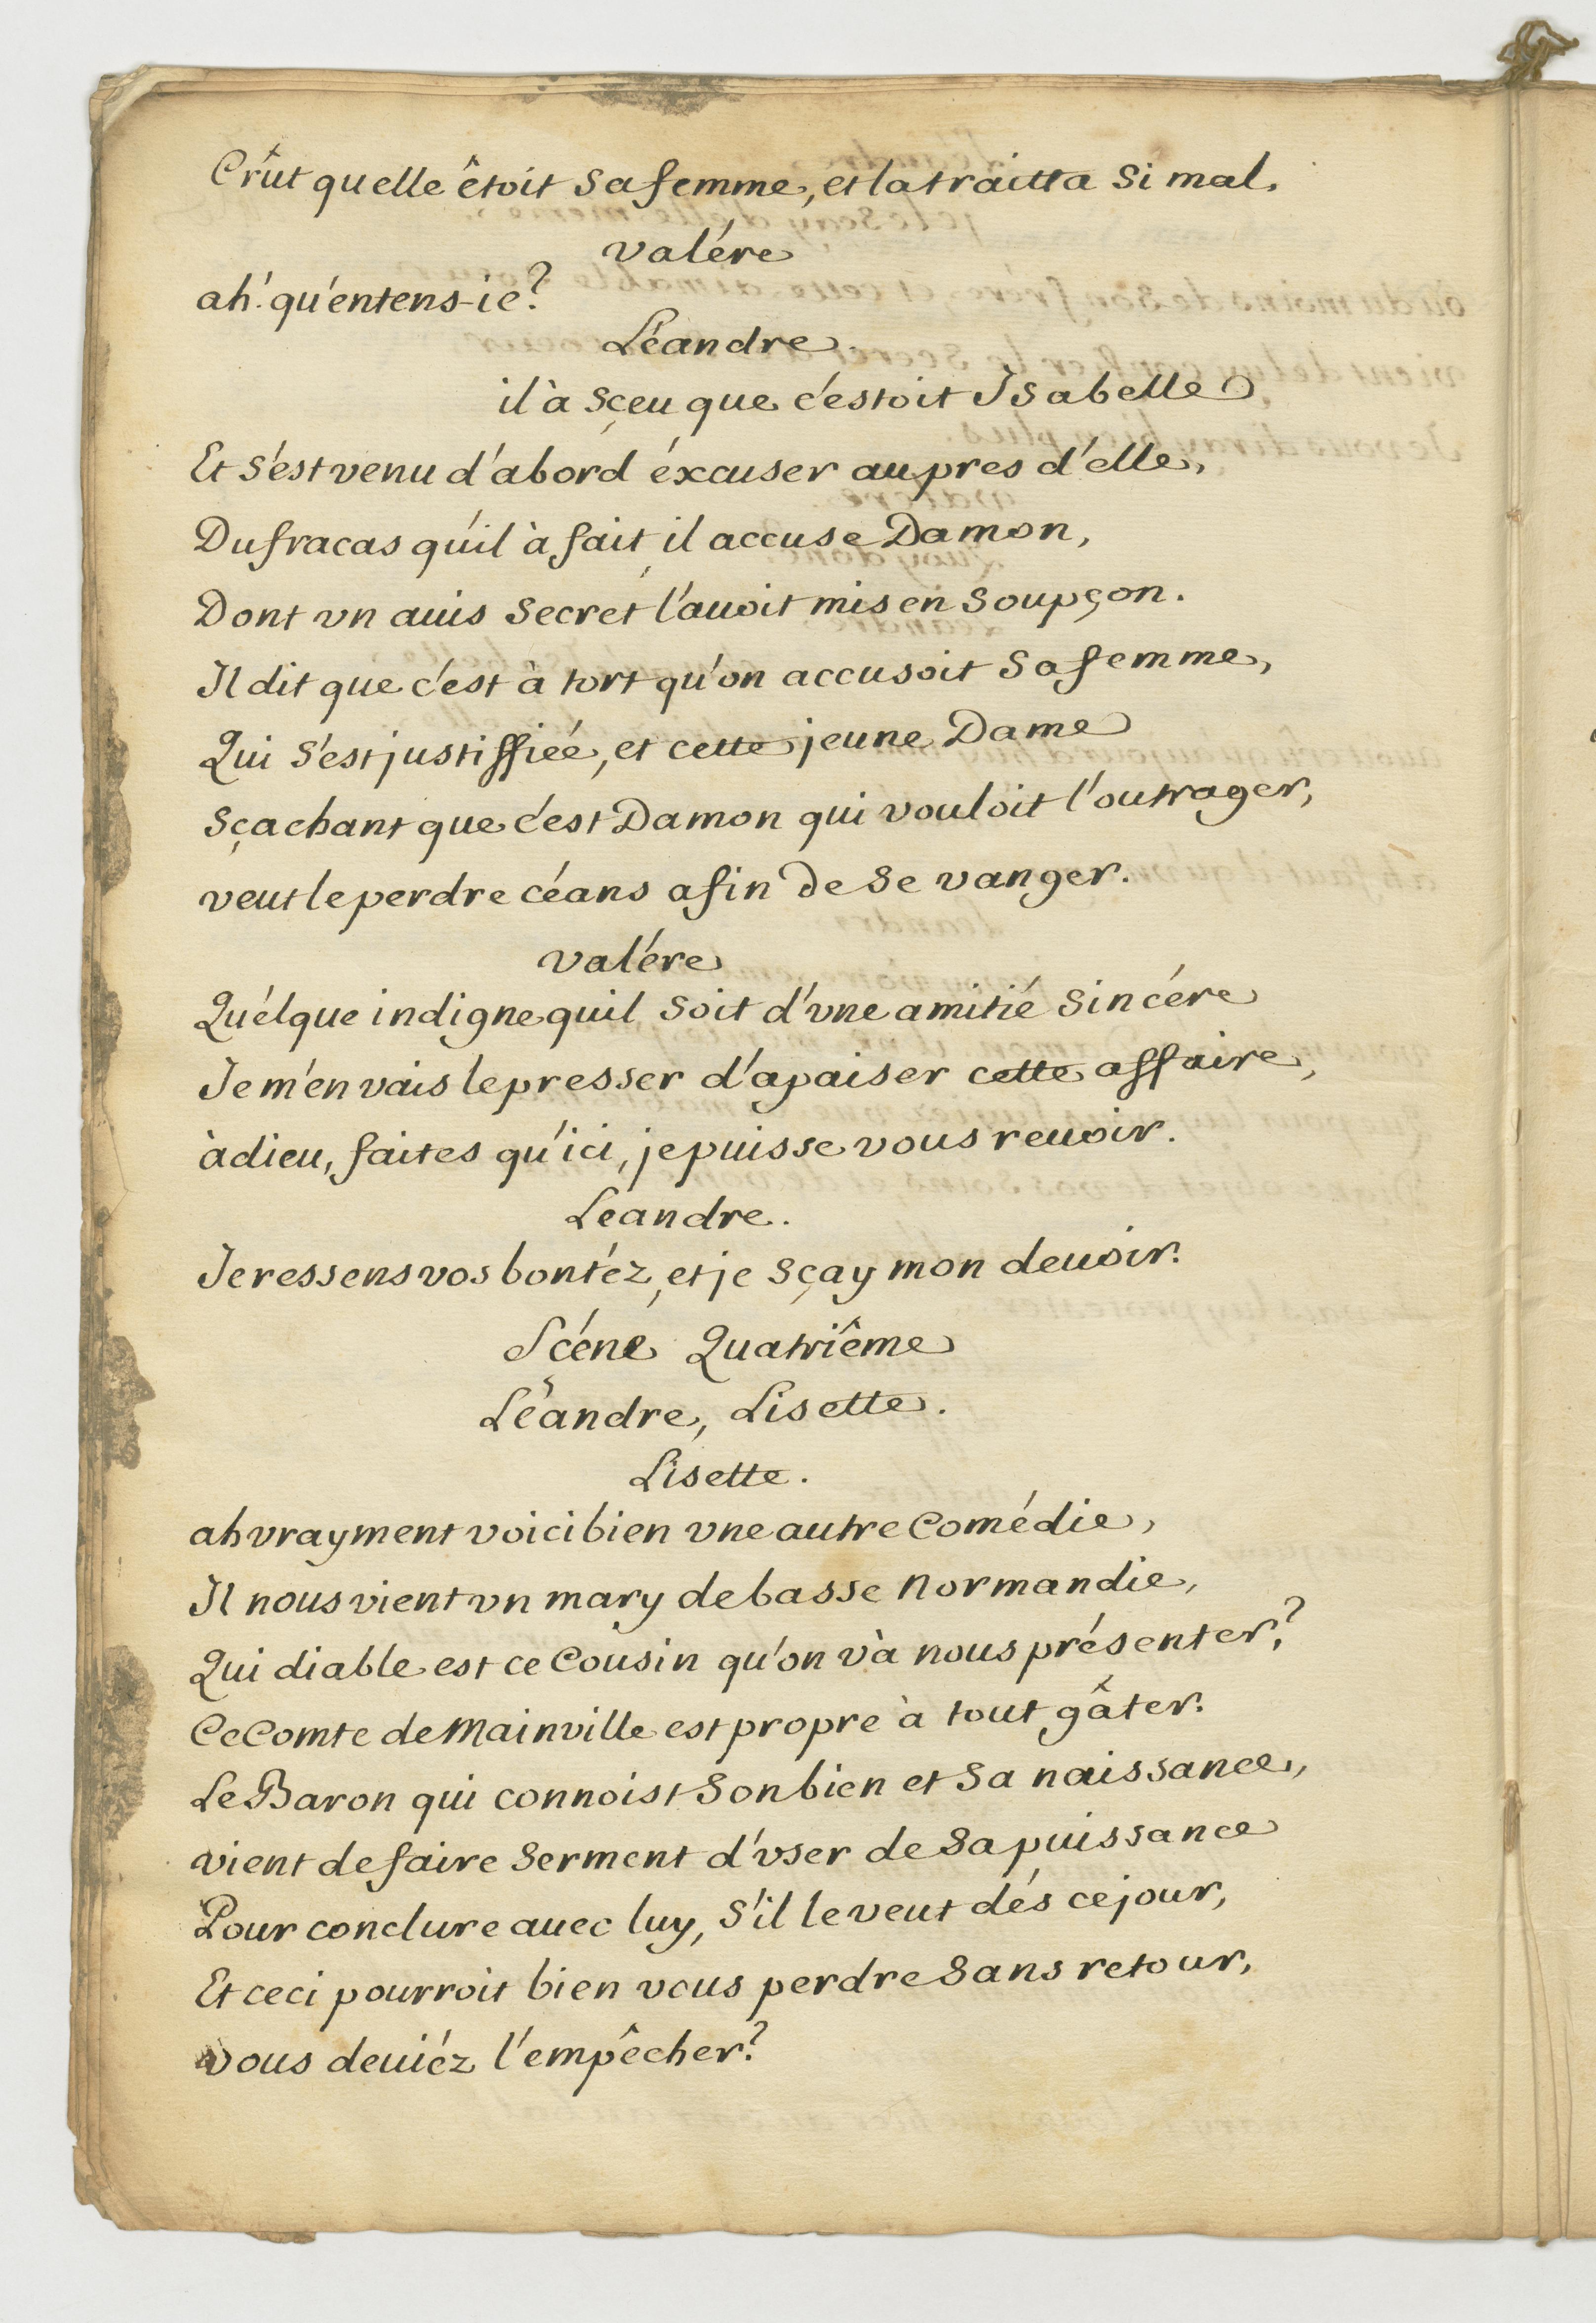 Crût quelle êtoit sa femme, et la traitta si mal.
Valére
ah! qu'entens-ie?
Léandre.
il à sçeu que c'estoit Isabelle
Et s'est venu d'abord éxcuser aupres d'elle,
Du fracas qu'il à fait, il accuse Damon,
Dont vn auis secret l'auoit mis en soupçon.
Il dit que c'est à tort qu'on accusoit sa femme,
Qui s'est justiffiée, et cette jeune Dame
Sçachant que c'est Damon qui vouloit l'outrager,
veut le perdre céans afin de se vanger.
Valére
Quélque indigne quil soit d'vne amitié sincére
Je m'en vais le presser d'apaiser cette affaire,
àdieu, faites qu'ici, je puisse vous reuoir.
Leandre.
Je ressens vos bontéz, et je sçay mon deuoir.
Scéne Quatriême
Léandre, Lisette.
Lisette.
ah vrayment voici bien vne autre Comédie,
Il nous vient vn mary de basse Normandie,
Qui diable est ce Cousin qu'on và nous présenter?
Ce Comte de Mainville est propre à tout gâter.
Le Baron qui connoist son bien et sa naissance,
vient de faire serment d'vser de sa puissance
Pour conclure auec luy, s'il le veut dés ce jour,
Et ceci pourroit bien vous perdre sans retour,
vous deuiéz l'empêcher?